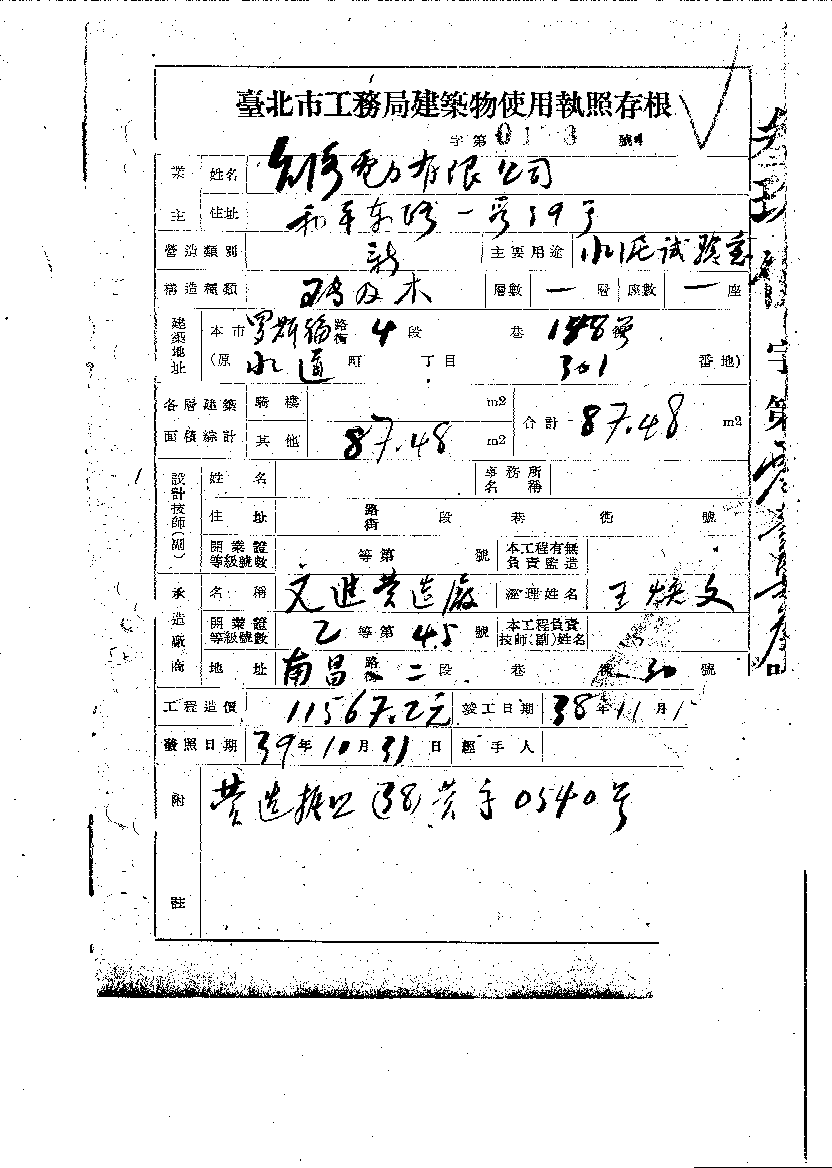 臺北市工務局建築物使用執照存根
字第01 3號
業主 姓名 電力有限公司
住址 和平东路一号
營造類別 新 主要用途 水泥试验室
構造種類 砖及木 層數 一 層 座數 一 座
建築地址 本市 罗斯福 路街 4 段 巷 號
(原 水道 町 丁目 301 番地)
各層建築面積綜計 騎樓 m2 合計 87.48 m2
其他 87.48 m2
設計技師(副) 姓名 事務所名稱
住址 路街 段 巷 衖 號
開業證等級號數 等第 號 本工程有無負責監造
承造廠商 名稱 文進营造廠 經理姓名 王焕文
開業證等級號數 乙 等第 45 號 本工程負責技師(副)姓名
地址 南昌 路街 二 段 巷 衖 30 號
工程造價 11567.2元 竣工日期 38年11月1
發照日期 39年10月31日 經手人
附註 营造执照(38)营字0540号
字第零壹